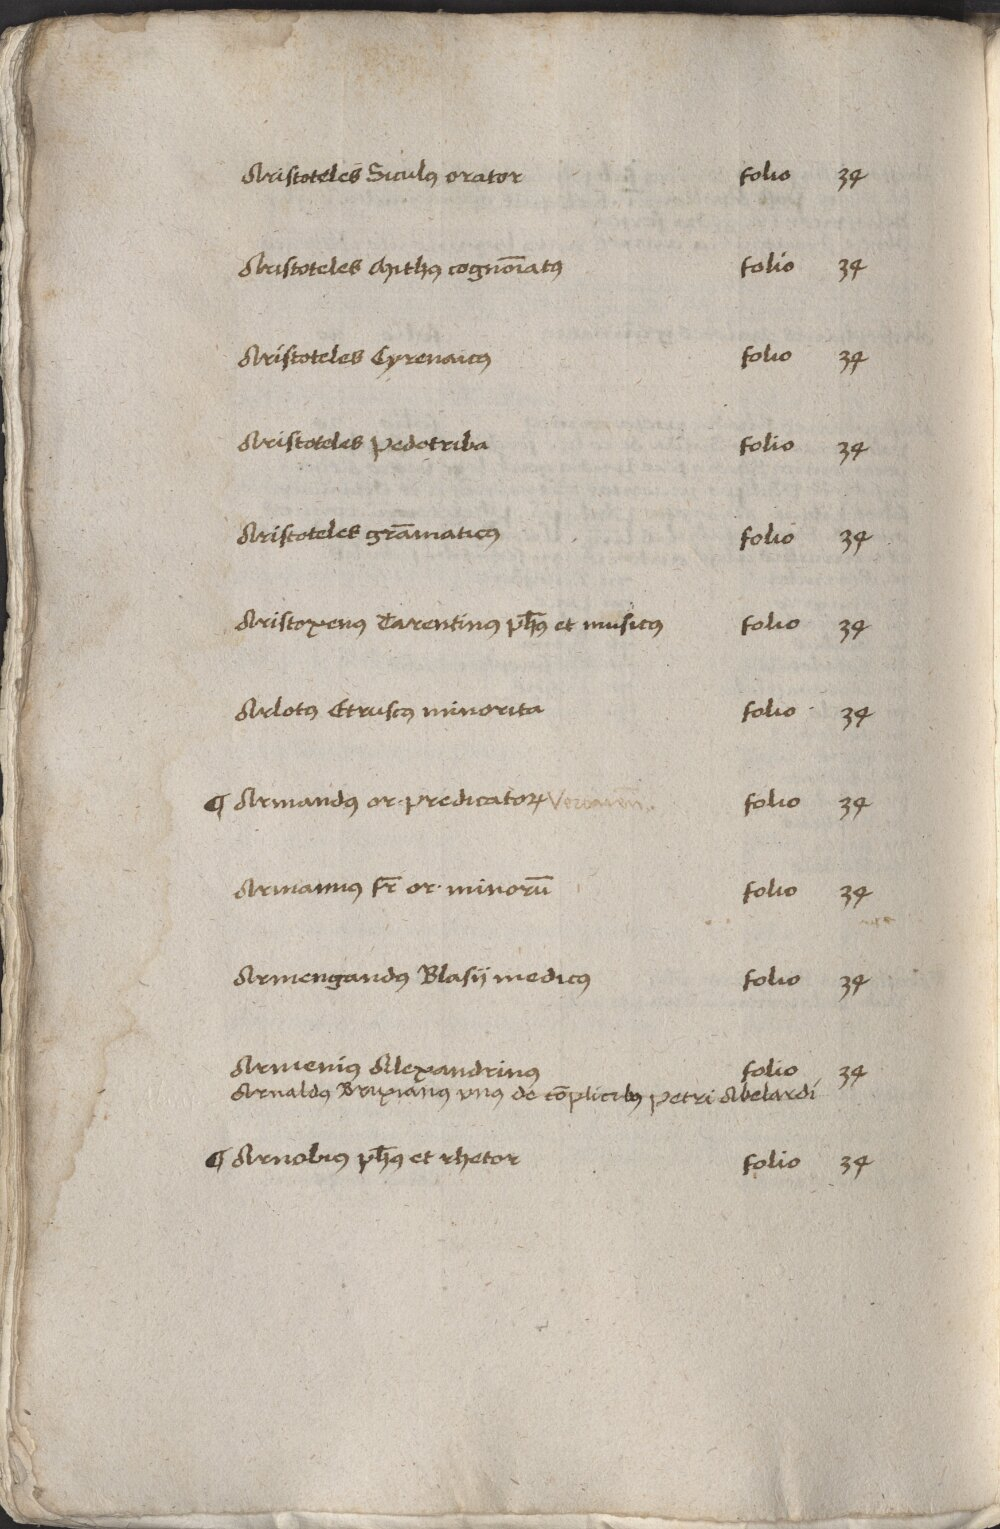 Aristoteles Siculꝰ orator folio 34
Aristoteles Mithꝰ cognoīatꝰ folio 34
Aristoteles Cyrenaicꝰ folio 34
Aristoteles pedotriba folio 34
Aristoteles grāmaticꝰ folio 34
Aristoxenꝰ Tarentinꝰ ph̄ꝰ et musicꝰ folio 34
Arlotꝰ Etruscꝰ minorita folio 34
¶ Armandꝰ or. predicatoꝝ folio 34
Armannꝰ fr̄ or. minorū folio 34
Armengandꝰ Blasij medicꝰ folio 34
Armeniꝰ Alexandrinꝰ folio 34
Arnaldꝰ Brixianꝰ vnꝰ de cōplicibꝰ petri Abelardi
¶ Arnobiꝰ ph̄ꝰ et rhetor folio 34